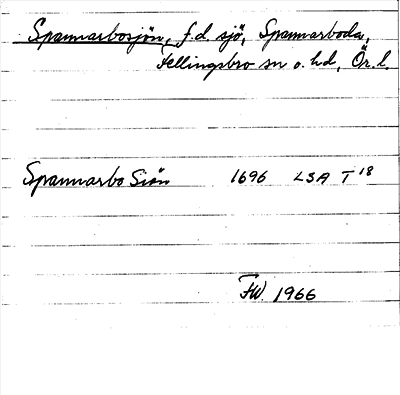 Spannarbosjön, f.d. sjö, Spannarboda,
Fellingsbro sn o. hd, Ör. l.
Spannarbo Siön 1696 LSA T 18
FW. 1966